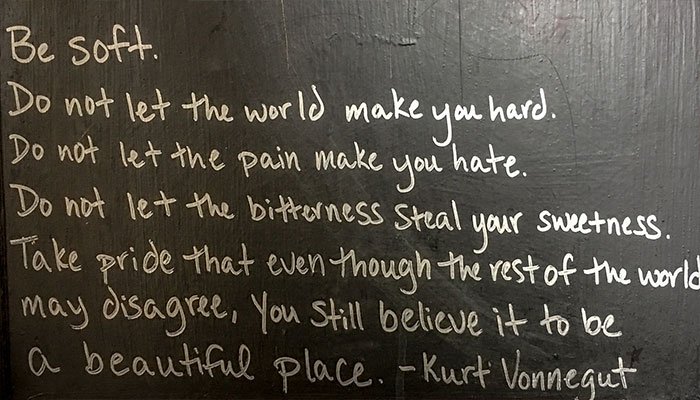 Be soft.
Do not let the world make you hard.
Do not let the pain make you hate.
Do not let the bitterness steal your sweetness.
Take pride that even though the rest of the world
may disagree, you still believe it to be
a beautiful place. -Kurt Vonnegut